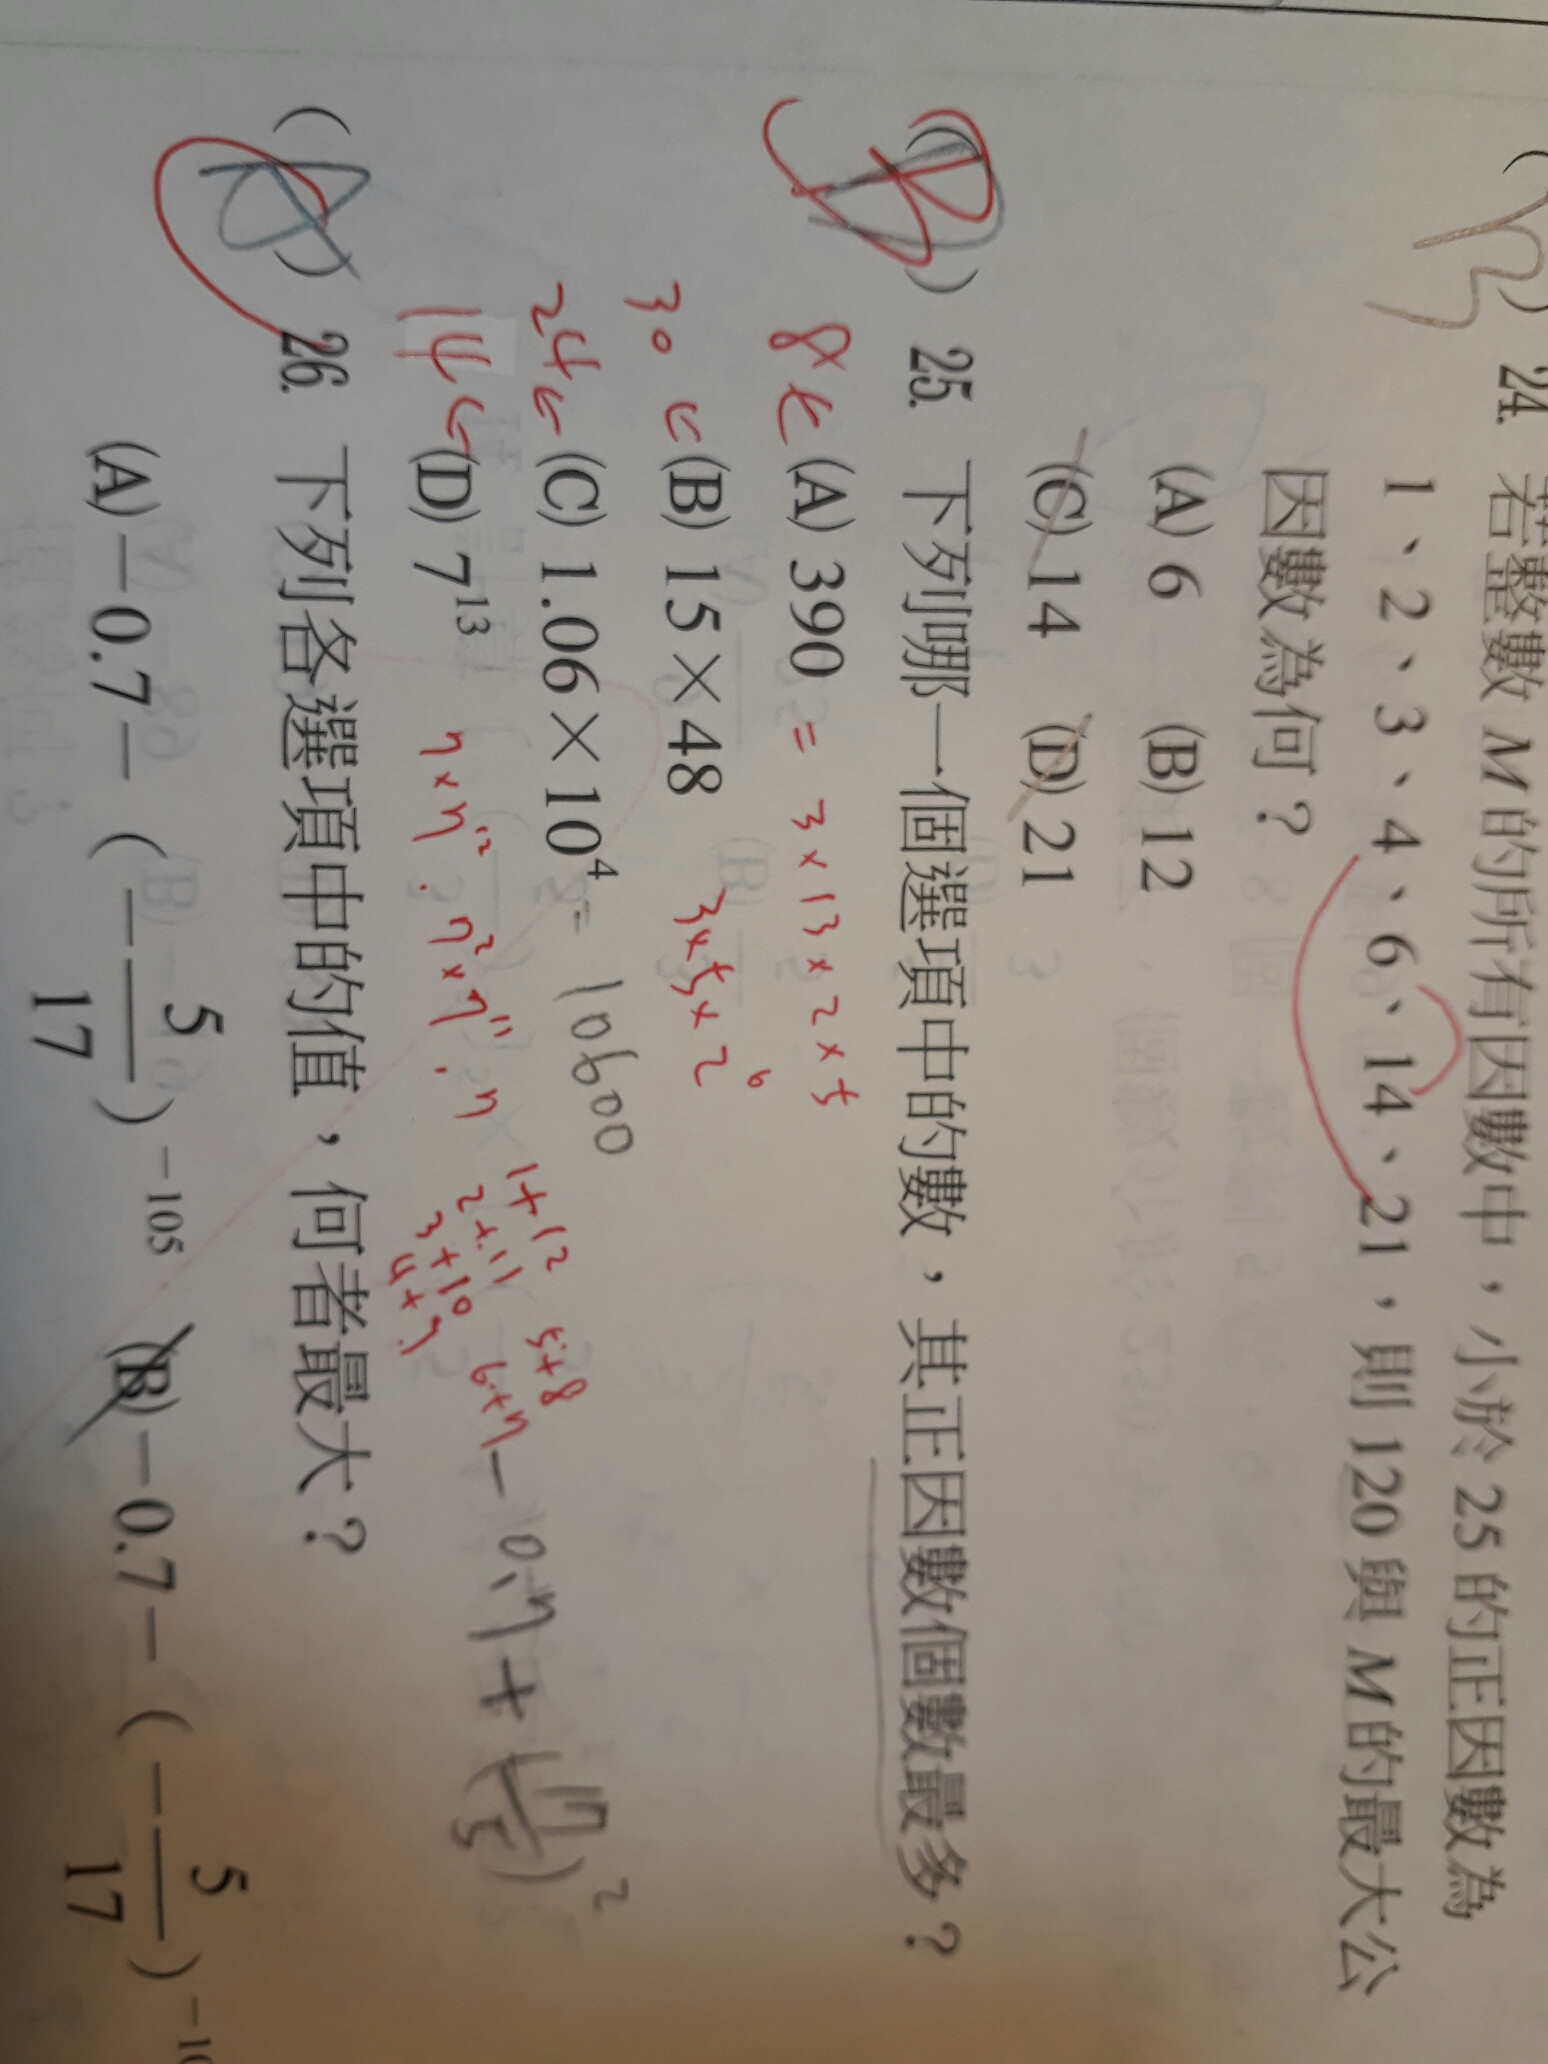 ( B ) 24. 若整數 M 的所有因數中，小於 25 的正因數為
1、2、3、4、6、14、21，則 120 與 M 的最大公
因數為何？
(A) 6 (B) 12
(C) 14 (D) 21
( B ) 25. 下列哪一個選項中的數，其正因數個數最多？
8x ← (A) 390 = 3×13×2×5
30 ← (B) 15×48 3×5×2⁶
24 ← (C) 1.06×10⁴ = 10600
14 ← (D) 7¹³ 7×7¹² . 7²×7¹¹ . 7
1+12
2+11
3+10
4+9
5+8
6+7
-0.7+(17/5)²
( A ) 26. 下列各選項中的值，何者最大？
(A) −0.7−(−5/17)⁻¹⁰⁵ (B) −0.7−(−5/17)